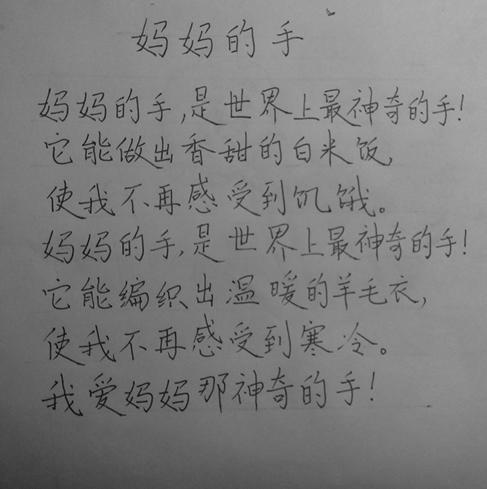 妈妈的手
妈妈的手,是世界上最神奇的手!
它能做出香甜的白米饭,
使我不再感受到饥饿。
妈妈的手,是世界上最神奇的手!
它能编织出温暖的羊毛衣,
使我不再感受到寒冷。
我爱妈妈那神奇的手!